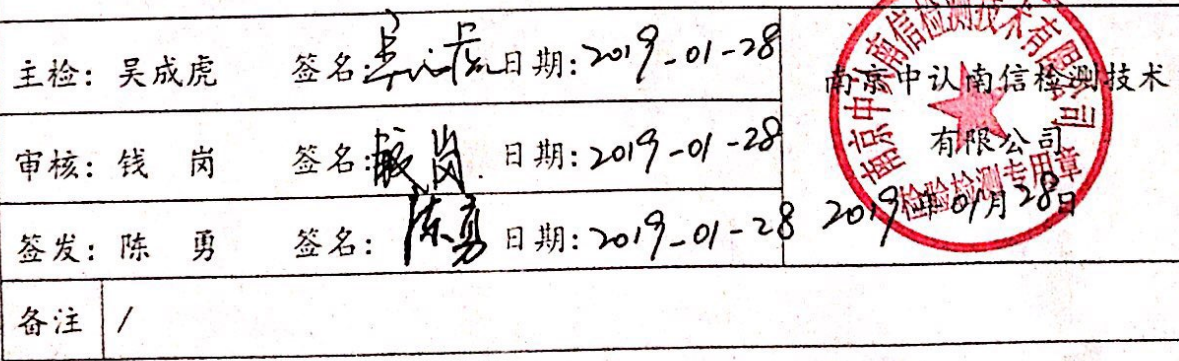 主检：吴成虎 签名：吴成虎 日期：2019-01-28
审核：钱 岗 签名：钱岗 日期：2019-01-28
签发：陈 勇 签名：陈勇 日期：2019-01-28
南京中认南信检测技术
有限公司
2019年01月28日
南京中认南信检测技术有限公司
检验检测专用章
备注 /